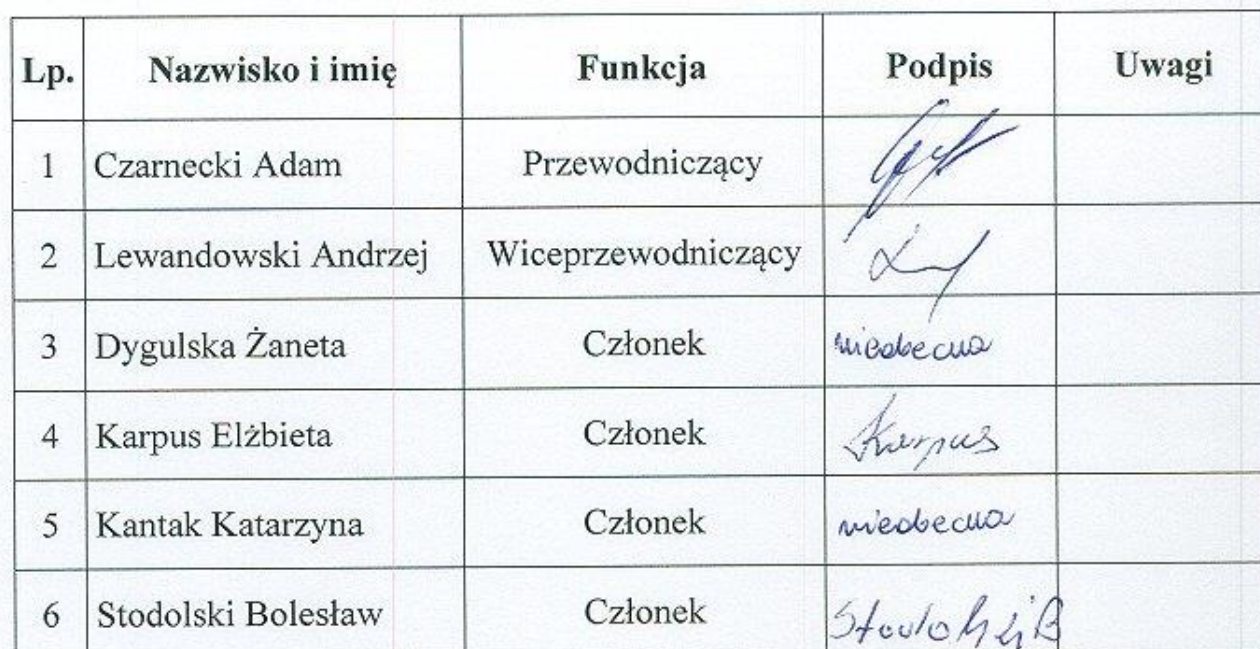 Lp. Nazwisko i imię Funkcja Podpis Uwagi
1 Czarnecki Adam Przewodniczący
2 Lewandowski Andrzej Wiceprzewodniczący
3 Dygulska Żaneta Członek nieobecna
4 Karpus Elżbieta Członek Karpus
5 Kantak Katarzyna Członek nieobecna
6 Stodolski Bolesław Członek